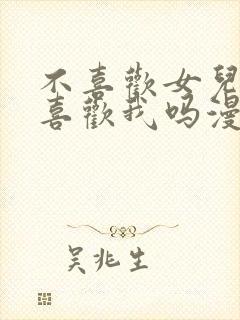 不喜歡女兒
喜歡我吗漫
吴兆生